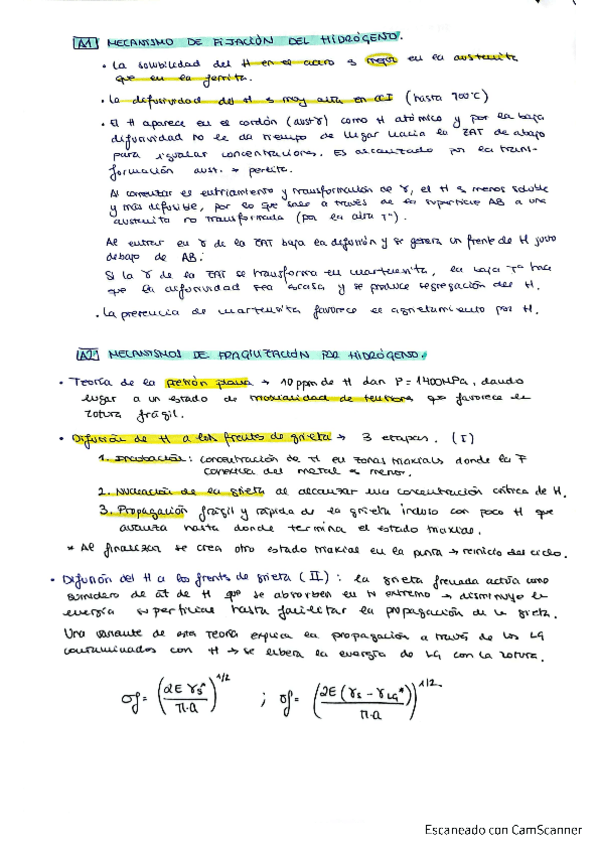 A1 MECANISMO DE FIJACIÓN DEL HIDRÓGENO.
· La solubilidad del H en el acero es mejor en la austenita
que en la ferrita.
· La difusividad del H es muy alta en α (hasta 900°C)
· El H aparece en el cordón (aust γ) como H atómico y por la baja
difusividad no le da tiempo de llegar hacia la ZAT de abajo
para igualar concentraciones. Es alcanzado por la trans-
formación aust. → perlita.
Al comenzar el enfriamiento y transformación de γ, el H es menos soluble
y más difusible, por lo que sale a través de la superficie AB a una
austenita no transformada (por la alta Tª).
Al entrar en γ de la ZAT baja la difusión y se genera un frente de H justo
debajo de AB.
Si la γ de la ZAT se transforma en martensita, la baja Tª hace
que la difusividad sea escasa y se produce segregación del H.
· La presencia de martensita favorece el agrietamiento por H.
A2 MECANISMOS DE FRAGILIZACIÓN POR HIDRÓGENO.
· Teoría de la presión plana → 10 ppm de H dan P = 1400MPa, dando
lugar a un estado de triaxialidad de tensiones que favorece la
rotura frágil.
· Difusión de H a los frentes de grieta → 3 etapas. (I)
1. Incubación: concentración de H en zonas triaxiales donde la F
cohesiva del metal es menor.
2. Nucleación de la grieta al alcanzar una concentración crítica de H.
3. Propagación frágil y rápida de la grieta incluso con poco H que
avanza hasta donde termina el estado triaxial.
* Al finalizar se crea otro estado triaxial en la punta → reinicio del ciclo.
· Difusión del H a los frentes de grieta (II): la grieta frenada actúa como
sumidero de át de H que se absorben en su extremo → disminuye la
energía superficial hasta facilitar la propagación de la grieta.
Una variante de esta teoría explica la propagación a través de los LG
contaminados con H → se libera la energía de LG con la rotura.
σf = (2E γs* / π·a)^1/2 ; σf = (2E (γs - γLG*) / π·a)^1/2
Escaneado con CamScanner